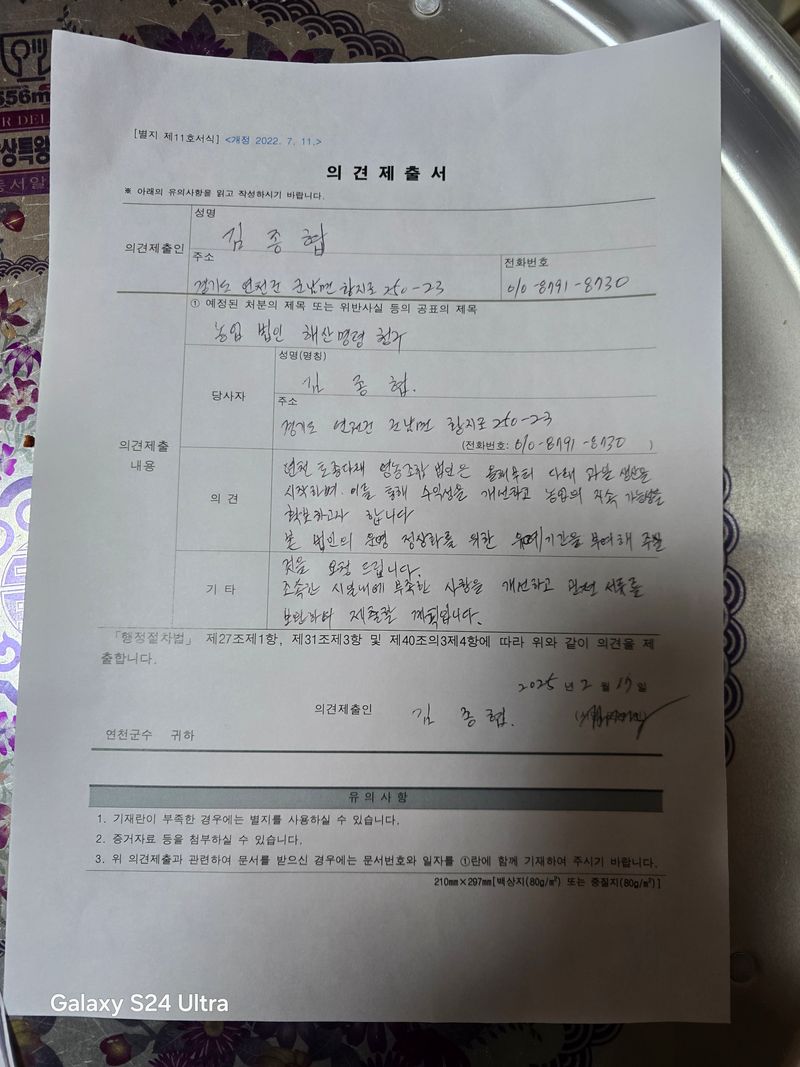 556m
R DEL
상특왕
[별지 제11호서식] <개정 2022. 7. 11.>
의 견 제 출 서
※ 아래의 유의사항을 읽고 작성하시기 바랍니다.
의견제출인
성명
김 종 협
주소
경기도 연천군 군남면 황지로 250-23
전화번호
010-8791-8730
의견제출 내용
① 예정된 처분의 제목 또는 위반사실 등의 공표의 제목
농업 법인 해산명령 청구
당사자
성명(명칭)
김 종 협.
주소
경기도 연천군 군남면 황지로 250-23
(전화번호: 010-8791-8730 )
의 견
연천 토종다래 영농조합 법인은 올해부터 다래 과일 생산을
시작하며. 이를 통해 수익성을 개선하고 농업의 지속 가능성을
확보하고자 합니다
본 법인의 운영 정상화를 위한 유예기간을 부여해 주실
것을 요청 드립니다.
기 타
조속한 시일내에 부족한 사항을 개선하고 관련 서류를
보완하여 제출할 계획입니다.
「행정절차법」 제27조제1항, 제31조제3항 및 제40조의3제4항에 따라 위와 같이 의견을 제
출합니다.
2025 년 2 월 17 일
의견제출인 김 종 협.
연천군수 귀하
유 의 사 항
1. 기재란이 부족한 경우에는 별지를 사용하실 수 있습니다.
2. 증거자료 등을 첨부하실 수 있습니다.
3. 위 의견제출과 관련하여 문서를 받으신 경우에는 문서번호와 일자를 ①란에 함께 기재하여 주시기 바랍니다.
210㎜×297㎜[백상지(80g/㎡) 또는 중질지(80g/㎡)]
Galaxy S24 Ultra